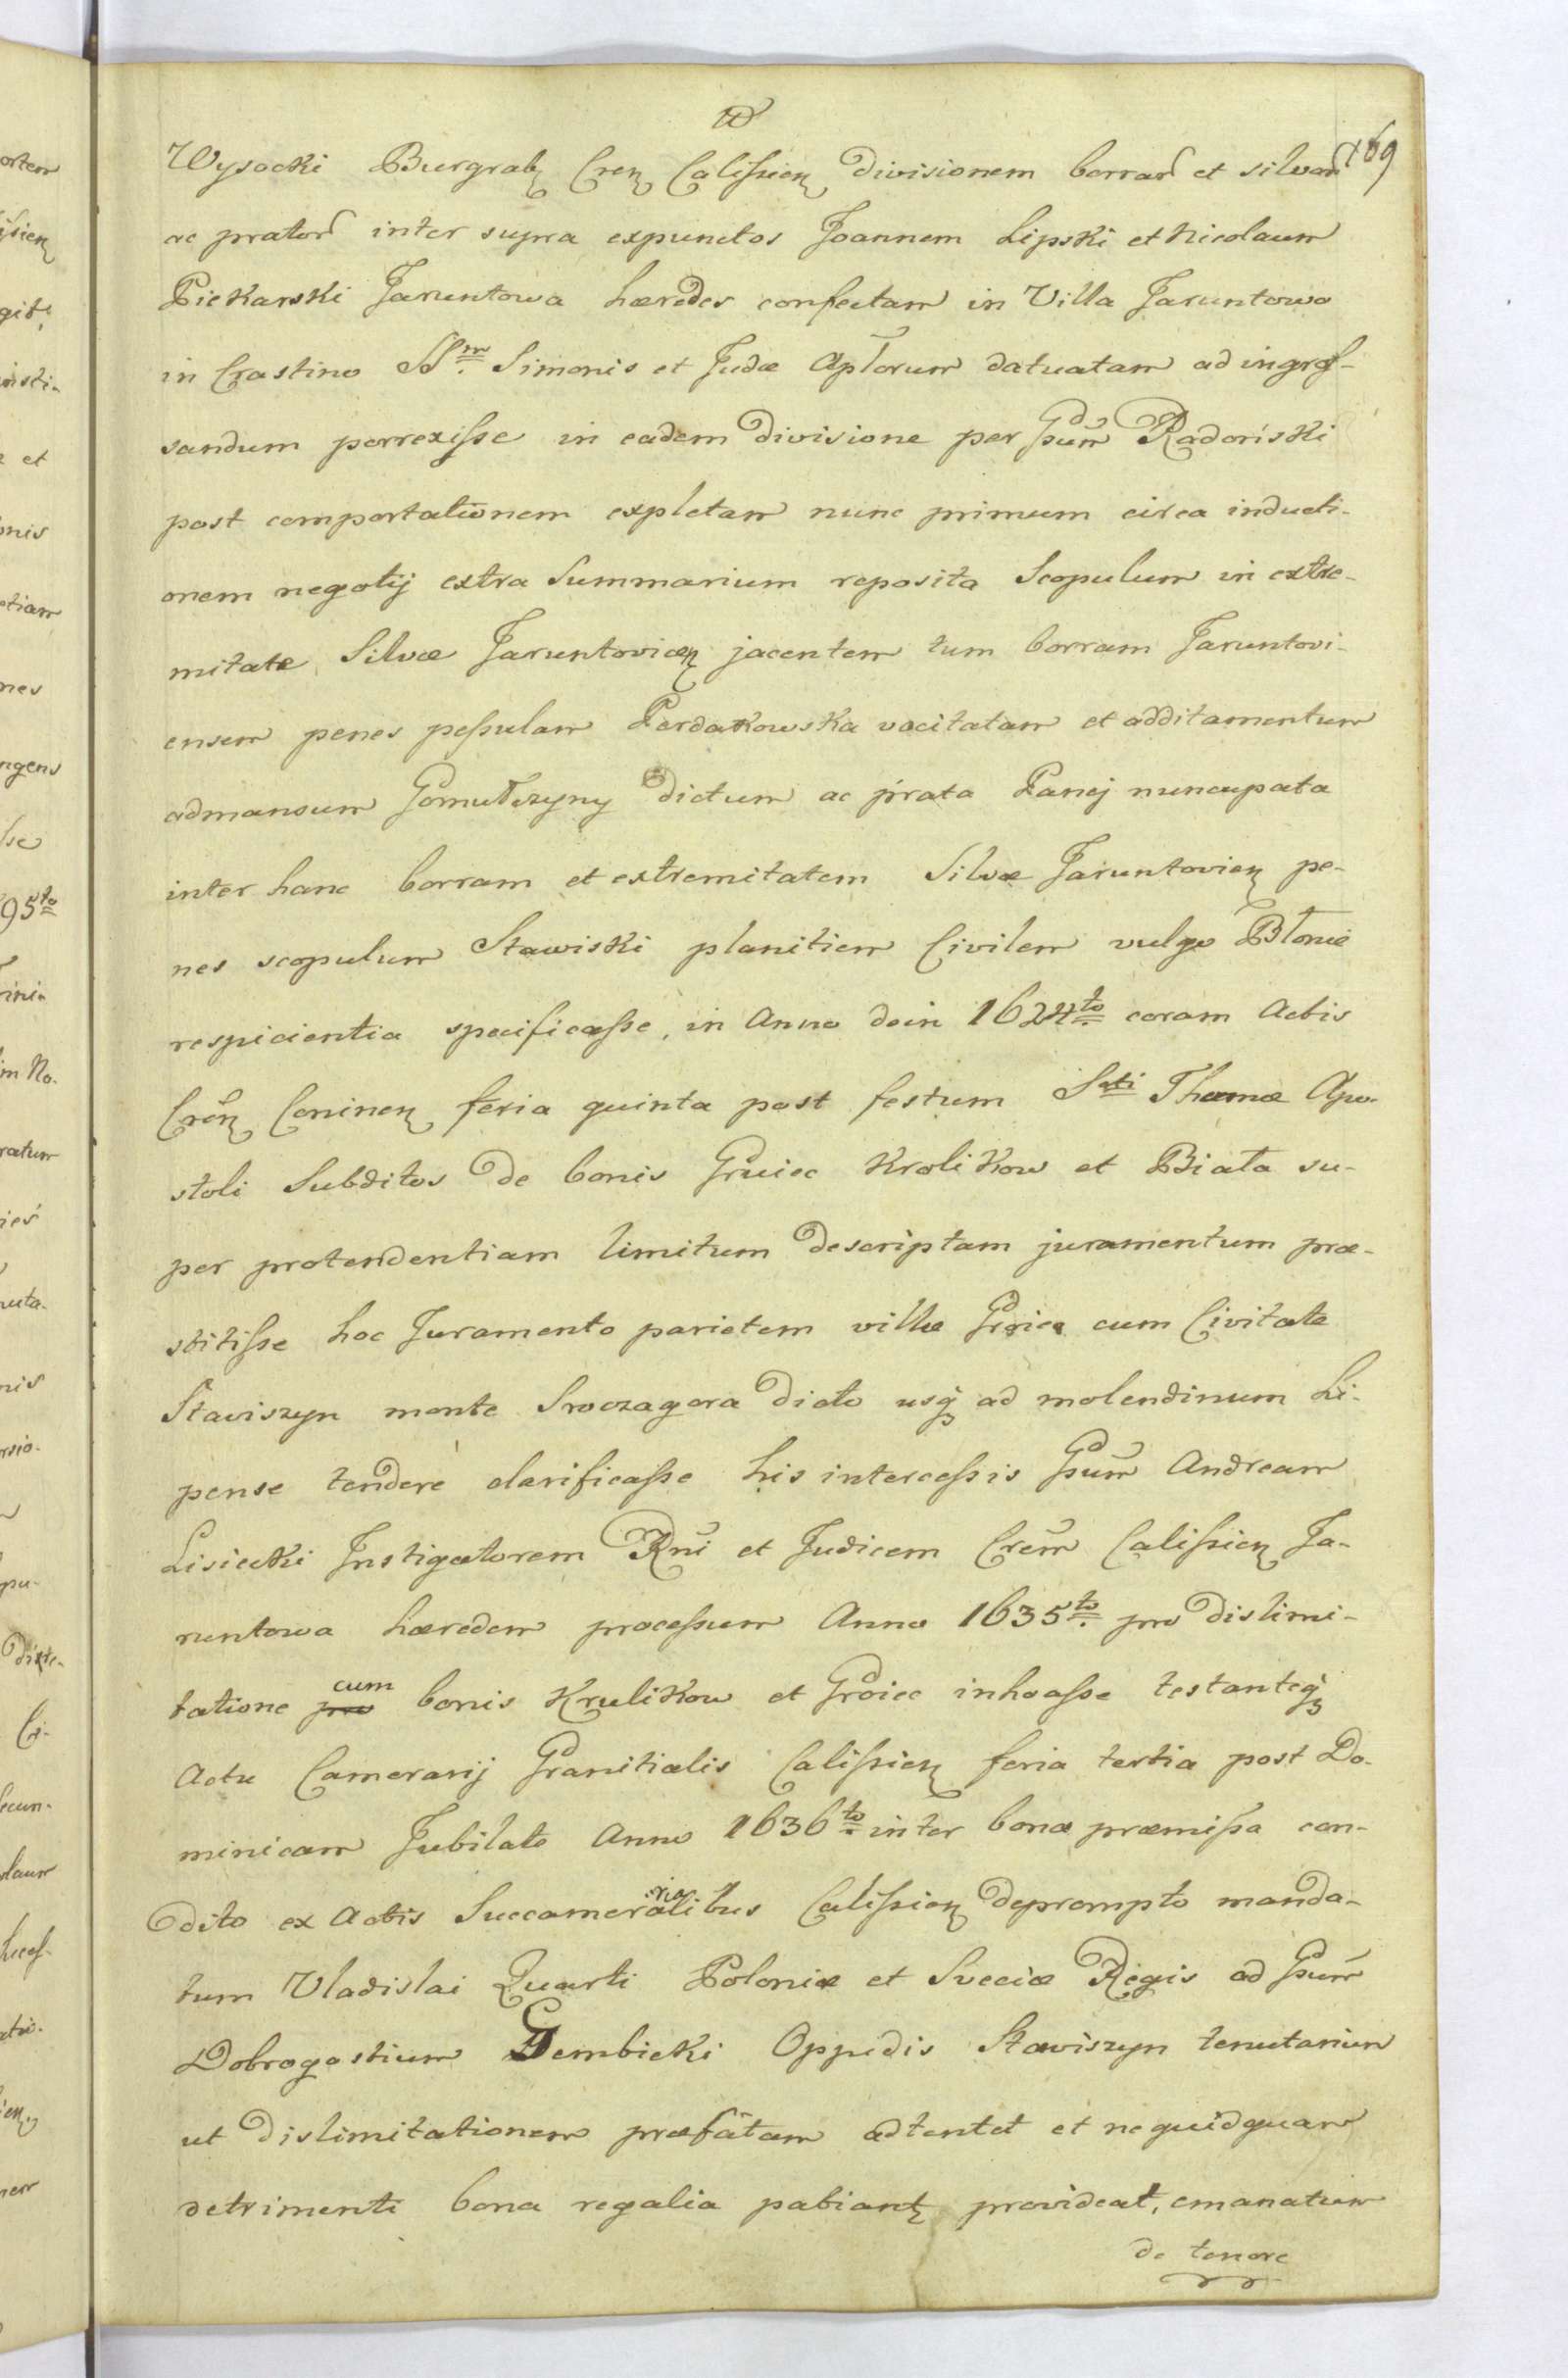 169
Wysocki Burgrab Cren Calissien divisionem borrar et silvar
ac prator inter supra expunctos Joannem Lipski et Nicolaum
Piekarski Jaruntowa hæredes confectam in Villa Jaruntowo
in Crastino SS.m Simonis et Judæ Aptorum datuatam ad ingros-
sandum porrexisse in eadem divisione per Gsum Radoński
post comportationem expletam nunc primum circa inducti-
onem negotij extra Summarium reposita Scopulum in extre-
mitate Silvæ Jaruntovicen jacentem tum borram Jaruntovi-
ensem penes pessulam Perdakowska vocitatam et additamentum
admansum Gomułszyny dictum ac prata Panej nuncupata
inter hanc borram et extremitatem Silvæ Jaruntovien pe-
nes scopulum Stawiski planitiem Civilem vulgo Błonie
respicientia specificasse, in Anno dein 1624to coram Actis
Cren Coninen feria quinta post festum Sti Thomæ Apo-
stoli Subditos de bonis Gruiec Krolikow et Biała su-
per protendentiam limitum descriptam juramentum præ-
stitisse hoc Juramento parietem villæ Groiec cum Civitate
Staviszyn monte Sroczagora dicto usq ad molendinum Li-
pense tendere clarificasse his intercessis Gsum Andream
Lisiecki Instigatorem Rni et Judicem Crem Calissien Ja-
runtowa hæredem processum Anno 1635to pro dislimi-
tatione pro cum bonis Krulikow et Groiec inhoasse testanteq
Actu Camerarij Granitialis Calissien feria tertia post Do-
minicam Jubilate Anno 1636to inter bona præmissa con-
dito ex Actis Succamerarialibus Calissien deprompto manda-
tum Vladislai Quarti Poloniæ et Sveciæ Regis ad Gsum
Dobrogostium Gembicki Oppidis Stawiszyn tenutarium
ut dislimitationem præfatam adtentet et nequidquam
detrimenti bona regalia pabiant provideat, emanatum
de tenore